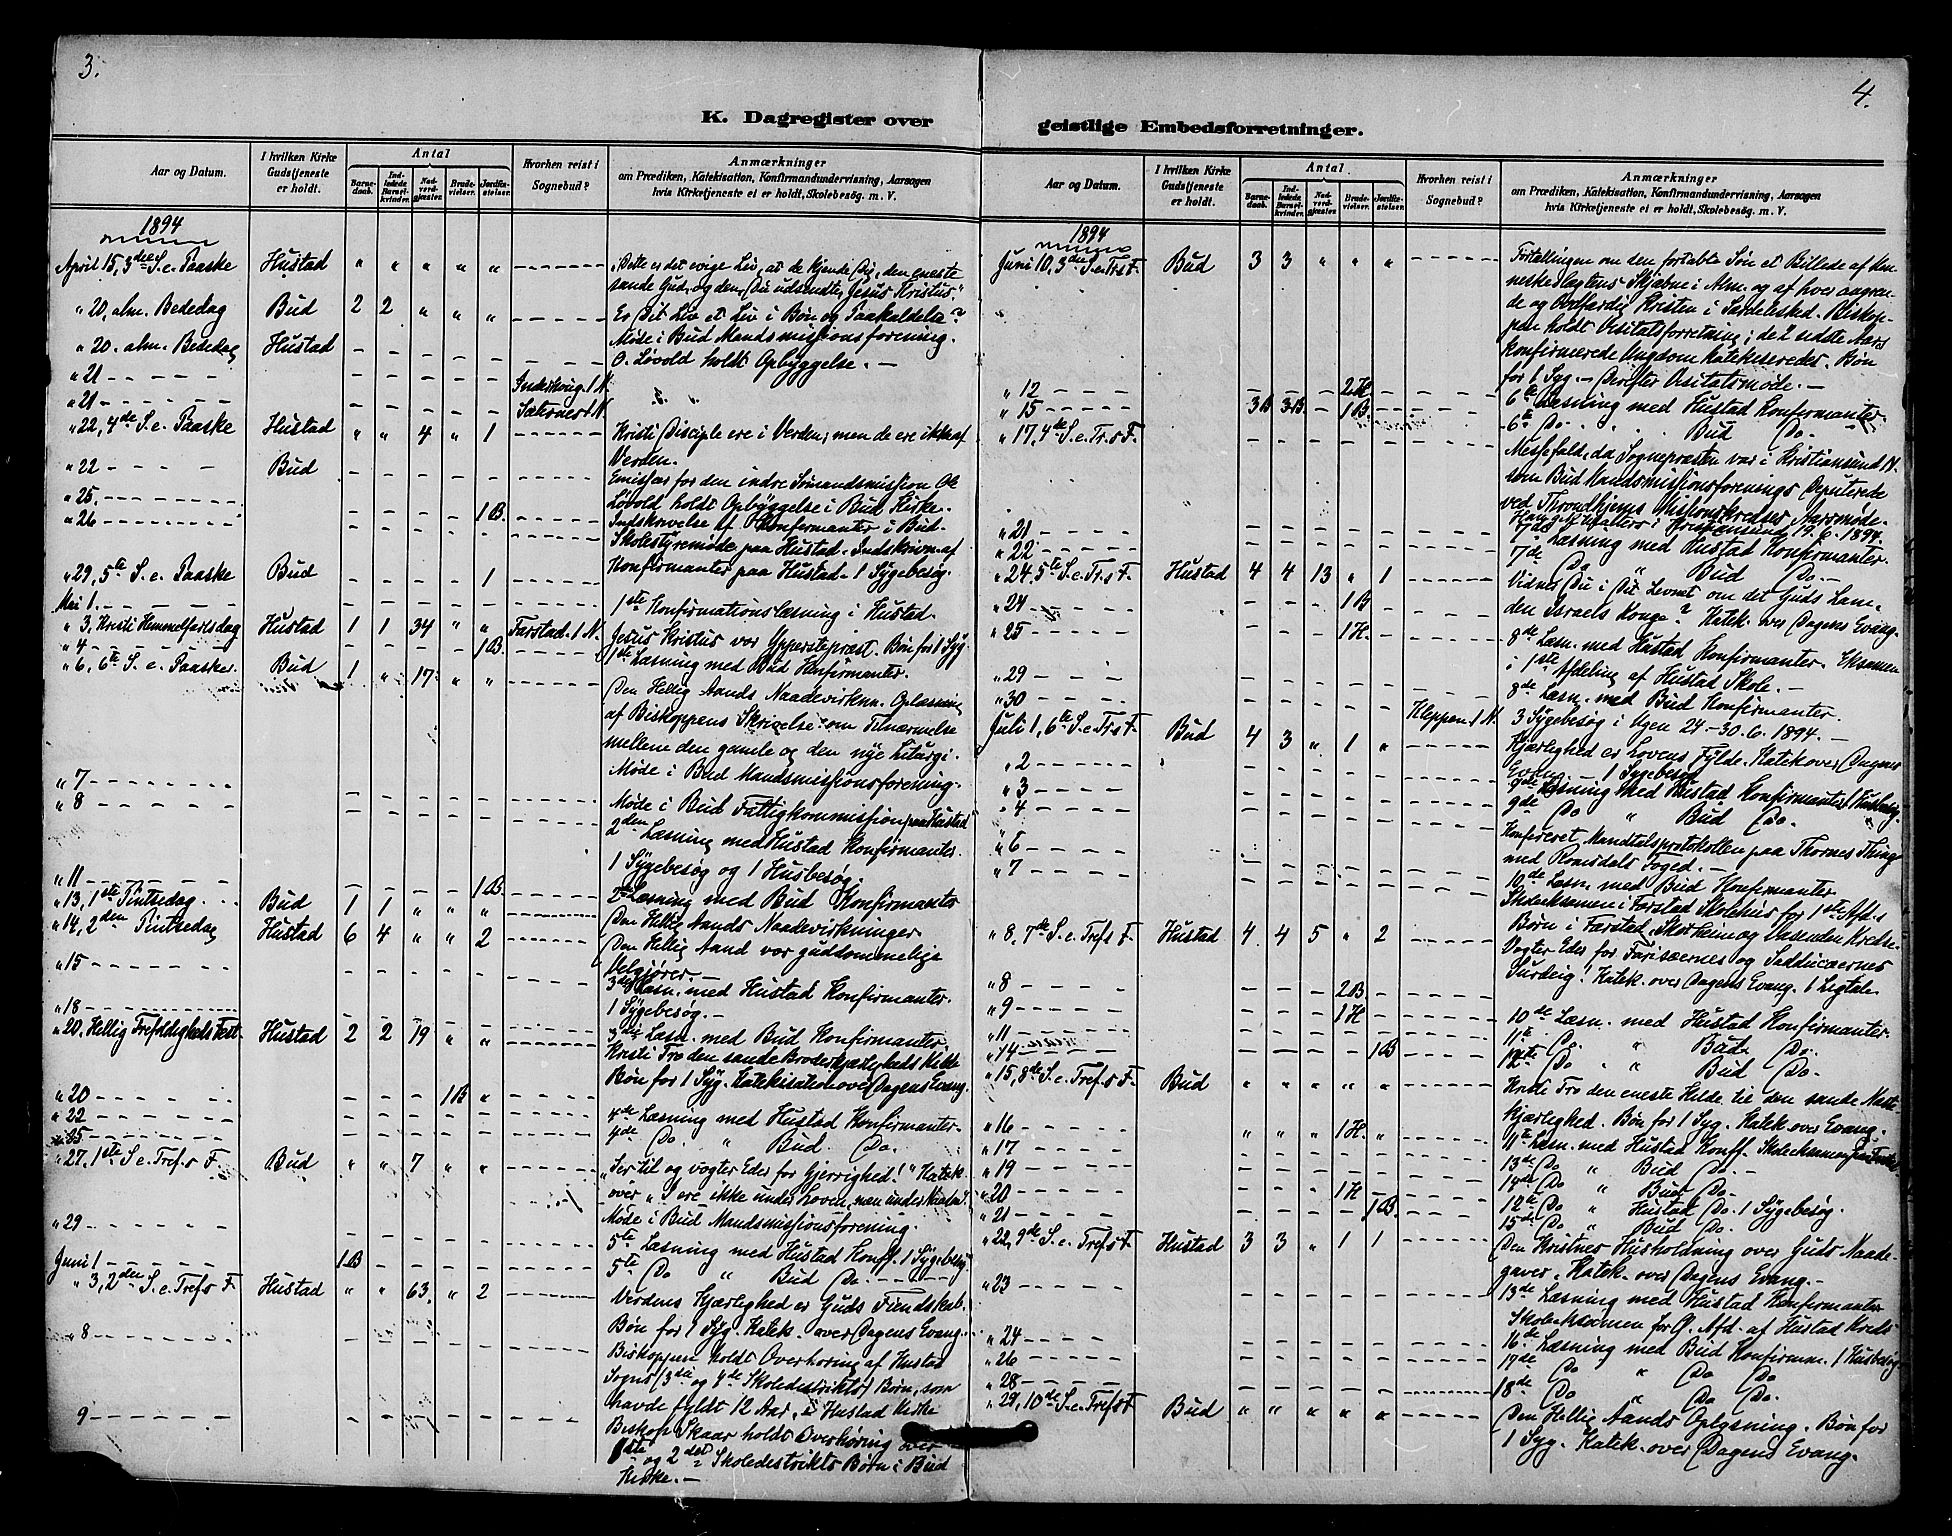 3.
K. Dagregister over
Aar og Datum.
I hvilken Kirke Gudstjeneste er holdt.
Antal
Barnedaab.
Indledede Barselkvinder.
Nadverdgjæster.
Brudevielser.
Jordfæstelser.
Hvorhen reist i Sognebud?
Anmærkninger
om Prædiken, Katekisation, Konfirmandundervisning, Aarsagen
hvis Kirketjeneste ei er holdt, Skolebesøg. m. V.
1894
April 15, 3die S. e. Paaske Hustad " " " " " "Dette er det evige Liv, at de kjende Dig, den eneste
sande Gud, og den, Du udsendte, Jesus Kristus."
" 20, alm. Bededag Bud 2 2 " " " Er Dit Liv et Liv i Bøn og Paakaldelse?
Møde i Bud Mandsmissionsforening.
" 20. alm. Bededag Hustad O. Løvold holdt Opbyggelse. —
" 21
" 21
" 22, 4de S. e. Paaske Hustad " " 4 " 1 Kristi Disciple ere i Verden, men de ere ikke af
Verden.
" 22 Bud Emissær for den indre Sømandsmission Ole
Løvold holdt Opbyggelse i Bud Kirke.
" 25.
" 26 1 B. Indskrivelse af Konfirmanter i Bud.
Skolestyremøde paa Hustad. Indskrivn. af
Konfirmanter paa Hustad. 1 Sygebesøg.
" 29, 5te S. e. Paaske Bud 1
Mai 1. 1ste Konfirmationslæsning i Hustad.
" 3, Kristi Himmelfartsdag Hustad 1 1 34 " " Farstad. 1 N. Jesus Kristus vor Ypperstepræst. Bøn for 1 Syg.
" 4 1 B. 1ste Læsning med Bud Konfirmanter.
" 6, 6te S. e. Paaske. Bud 1 " 17 " " Den Hellig Aands Naadevirkn. Oplæsning
af Biskoppens Skrivelse om Tilnærmelse
mellem den gamle og den nye Liturgi.
" 7 Møde i Bud Mandsmissionsforening.
" 8 Møde i Bud Fattigkommission paa Hustad
2den Læsning med Hustad Konfirmanter.
1 Sygebesøg og 1 Husbesøg.
" 11 1 B. 2den Læsning med Bud Konfirmanter
" 13, 1ste Pintsedag Bud 1 1 " " Den Hellig Aands Naadevirkninger
" 14, 2den Pintsedag Hustad 6 4 " " 2 Den Hellig Aand vor guddommelige
Velgjører. —
" 15 3die Læsn. med Hustad Konfirmanter.
1 Sygebesøg. —
" 18 3die Læsn. med Bud Konfirmanter.
" 20. Hellig Trefoldigheds Fest. Hustad 2 2 19 " " Kristi Tro den sande Broderkjærligheds Kilde
Bøn for 1 Syg. Katekisation over Dagens Evang.
" 20 1 B "
" 22 4de Læsning med Hustad Konfirmanter.
" 25 4de Do. " Bud. Do.
" 27. 1ste S. e. Tref.s F. Bud " " 7 " " "Ser til og vogter Eder for Gjerrighed!" Katek.
over "I ere ikke under Loven, men under Naaden".
" 29 Møde i Bud Mandsmissionsforening.
5te Læsning med Hustad Konff. 1 Sygebesøg.
Juni 1 1 B 5te Do " Bud Do.
" 3, 2den S. e. Tref.s F. Hustad " " 63. " 2 Verdens Kjærlighed er Guds Fiendskab.
Bøn for 1 Syg. Katek. over Dagens Evang.
" 8 Biskoppen holdt Overhøring af Hustad
Sogns (3die og 4de Skoledistrikts) Børn, som
havde fyldt 12 Aar, i Hustad Kirke
9 Biskop Skaar holdt Overhøring over
1ste og 2det Skoledistrikts Børn i Bud
Kirke. —
4.
geistlige Embedsforretninger.
Aar og Datum.
I hvilken Kirke Gudstjeneste er holdt.
Antal
Barnedaab.
Indledede Barselkvinder.
Nadverdgjæster.
Brudevielser.
Jordfæstelser.
Hvorhen reist i Sognebud?
Anmærkninger
om Prædiken, Katekisation, Konfirmandundervisning, Aarsagen
hvis Kirketjeneste ei er holdt, Skolebesøg. m. V.
1894
Juni 10, 3die S. e. Tr.s F. Bud 3 3 " " " Fortællingen om den fortabte Søn et Billede af Men-
neskeslægtens Skjæbne i Alm. og af hver angren-
de og bodfærdig Kristen i Særdeleshed. Biskop-
pen holdt Visitatsforretning; de 2 sidste Aars
konfirmerede Ungdom katekiseredes. Bøn
for 1 Syg. — Derefter Visitatsmøde. —
" 12 2 H. 6te Læsning med Hustad Konfirmanter
" 15 3 B 3 B. 1 B. 6te Do. " Bud Do.
" 17, 4de S. e. Tr.s F. Messefald, da Sognepræsten var i Kristiansund N.
som Bud Mandsmissionsforenings Deputerede
ved Throndhjems Missionskredses Aarsmøde.
" 21 7de Læsning med Hustad Konfirmanter.
" 22 7de Do " Bud Do. —
" 24, 5te S. e. Tr.s F. Hustad 4 4 13 " 1 Vidner Du i Dit Levnet om det Guds Lam,
den Israels Konge? Katek. over Dagens Evang.
" 24 1 B
" 25 1 H. 8de Læsn. med Hustad Konfirmanter. Eksamen
i 1ste Afdeling af Hustad Skole. —
" 29 8de Læsn. med Bud Konfirmanter.
" 30 Kleppen. 1 N. 3 Sygebesøg i Ugen 24—30. 6. 1894. —
Juli 1, 6te S. e. Tr.s F. Bud 4 3 " 1 " Kjærlighed er Lovens Fylde. Katek. over Dagens
Evang. — 1 Sygebesøg
" 2 9de Læsning med Hustad Konfirmanter. 1 Husbesøg.
" 3 9de Do " Bud Do.
" 4 Konfereret Mandtalsprotokollen paa Thornes Thing
med Romsdals Foged. —
" 6 10de Læsn. med Bud Konfirmanter
" 7 Skoleeksamen i Farstad Skolehus for 1ste Afd.s
Børn i Farstad, Skotheim og Vasenden Kredse.
" 8, 7de S. e. Tref.s F. Hustad 4 4 5 " 2 Vogter Eder for Farisæernes og Sadducæernes
Surdeig! Katek. over Dagens Evang. 1 Ligtale
" 8 2 B
" 9 1 H 10de Læsn. med Hustad Konfirmanter.
" 11 11te Do. " Bud Do.
" 14 1 B 12te Do. " Bud Do.
" 15, 8de S. e. Tref.s F. Bud " " " " " Kristi Tro den eneste Kilde til den sande Næste-
kjærlighed. Bøn for 1 Syg. Katek. over Evang.
" 16 " " 1 H. " 11te Læsn. med Hustad Konff.
" 17 13de Do " Bud Do. —
" 19 14de Do " Bud Do.
" 20 1 H 12te Do " Hustad Do. 1 Sygebesøg.
" 21 1 B. 15de Do " Bud Do.
" 22, 9de S. e. Tref.s F. Hustad 3 3 " 1 1 Den Kristnes Husholdning over Guds Naade-
gaver. Katek. over Dagens Evang. —
" 23 13de Læsning med Hustad Konfirmanter
Skoleeksamen for Ø. Afd. af Hustad Kreds
" 24 16de Læsning med Bud Konfirmm. 1 Husbesøg
" 26 17de Do " Do Do
" 28 18de Do " Do Do.
" 29, 10de S. e. Tref.s F. Bud " " " " " Den Hellig Aands Oplysning. Bøn for
1 Syg. Katek. over Dagens Evang.